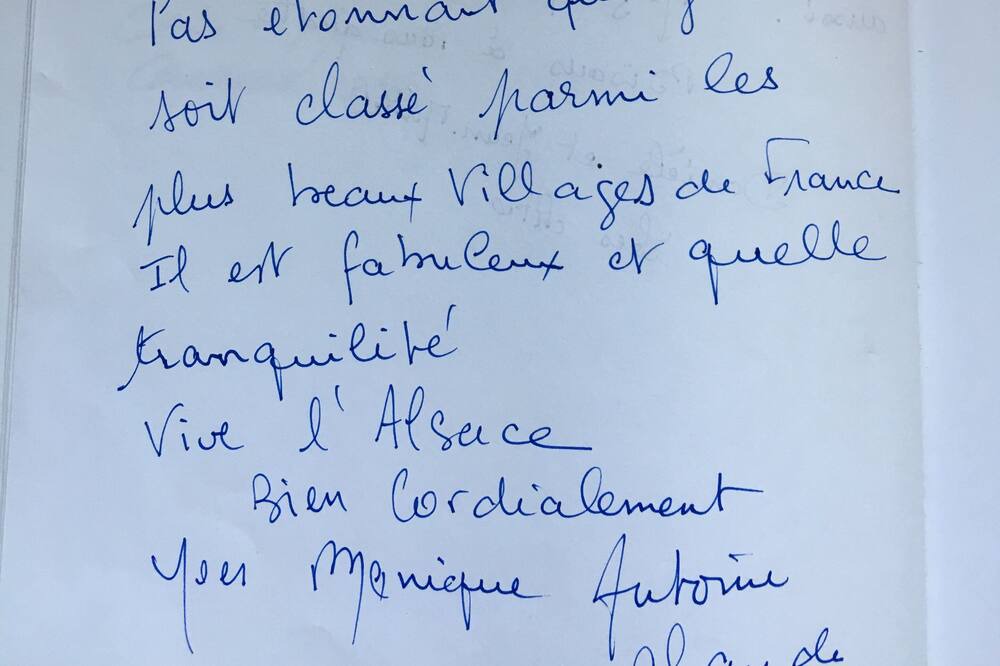 Pas etonnant
soit classé parmi les
plus beaux Villages de France
Il est fabuleux et quelle
tranquilité
Vive l'Alsace
Bien Cordialement
Yves Monique Antoine